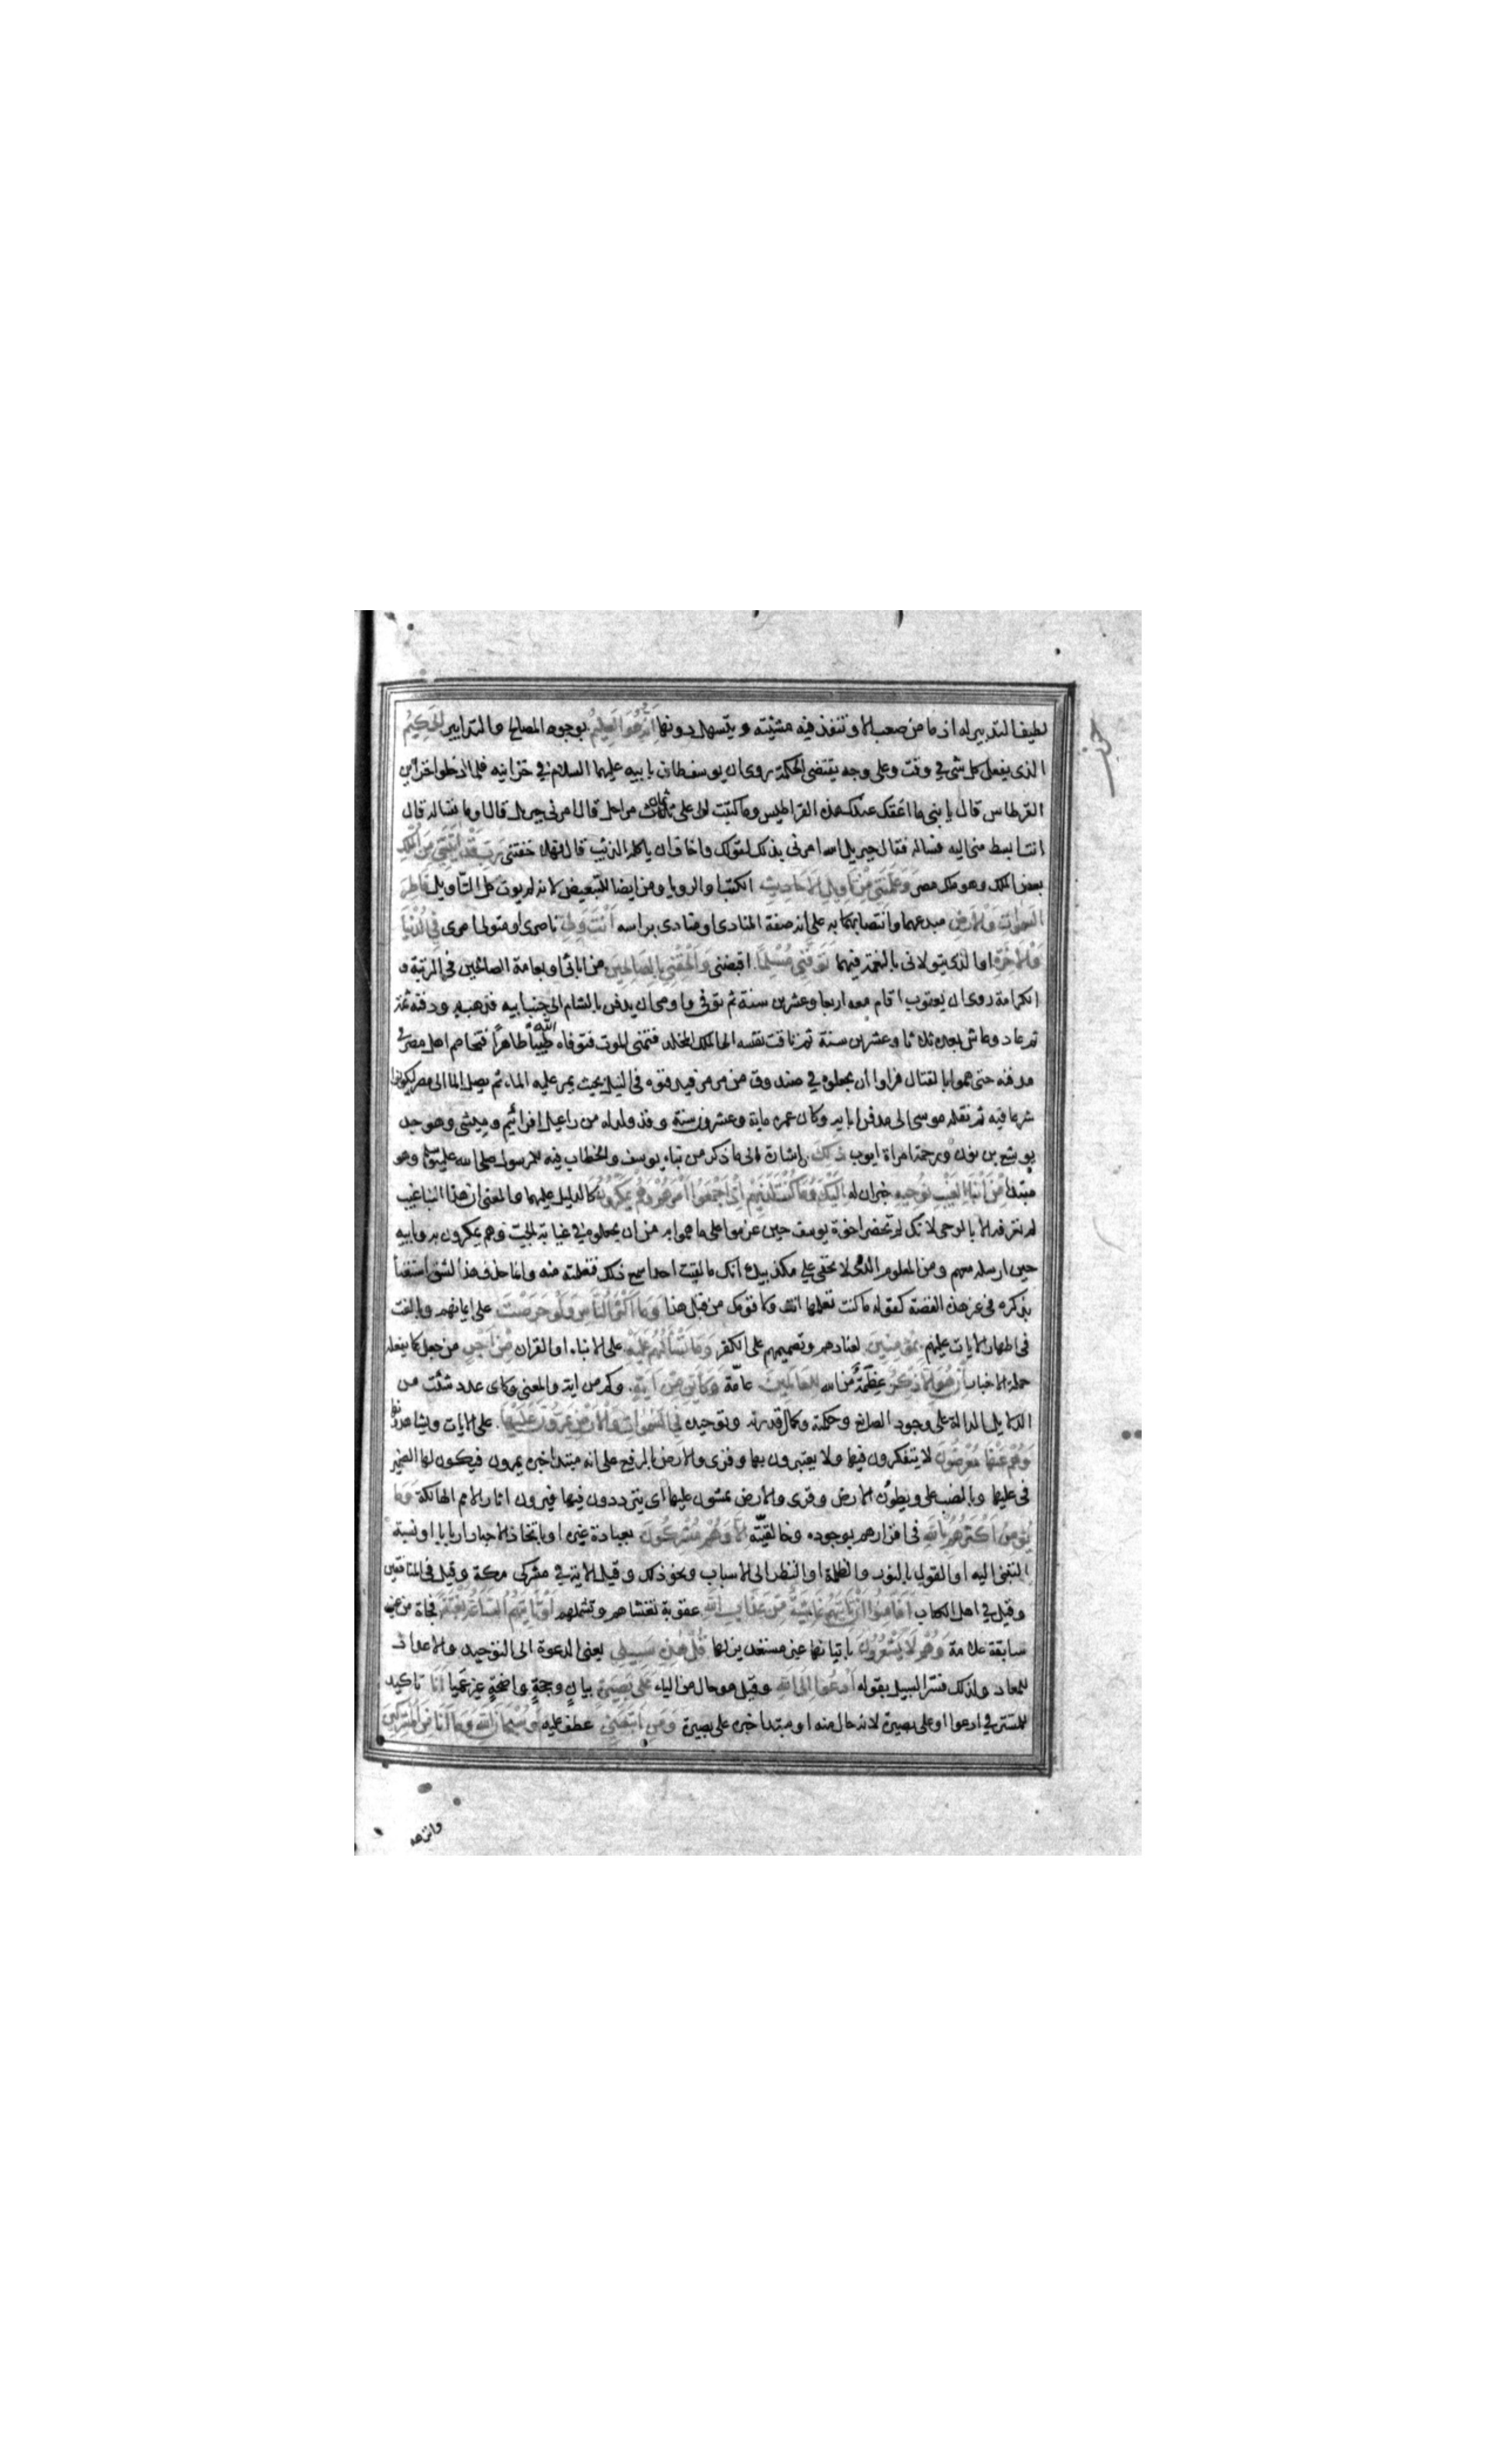 لطيف التدبير له اذ ما من صعب الا وتنفذ فيه مشيته ويتسهل دونها انه هو العليم بوجوه المصالح والتدابير الحكيم
الذي يفعل كل شي في وقت وعلى وجه يقتضي الحكمة روى ان يوسف طاف بابيه عليهما السلام في خزاينه فلما ادخلوا خزاين
القرطاس قال يا بني ما اعقك عندك هذه القراطيس وما كتبت الى على ثمان مراحل قال امرني جبريل قال او ما تساله قال
انت ابسط مني اليه فساله فقال جبريل الله امرني بذلك لقولك واخاف ان ياكله الذئب قال فهلا خفتني رب قد اتيتني من الملك
بعض الملك وهو ملك مصر وعلمتني من تاويل الاحاديث الكتب والرويا ومن ايضا للتبعيض لانه لم يوت كل التاويل فاطر
السموات والارض مبدعهما وانتصابه على انه صفة المنادى او منادى براسه انت وليي ناصري او متولي امري في الدنيا
والاخرة او الذي يتولاني بالنعمة فيهما توفني مسلما اقبضني والحقني بالصالحين من ابائي او بعامة الصالحين في الرتبة و
الكرامة روى ان يعقوب اقام معه اربعا وعشرين سنة ثم توفي واوصى ان يدفن بالشام الى جنب ابيه فذهب به ودفنه ثمة
ثم عاد وعاش بعده ثلاثا وعشرين سنة ثم تاقت نفسه الى الملك المخلد فتمنى الموت فتوفاه الله طيبا طاهرا فتخاصم اهل مصر في
مدفنه حتى هموا بالقتال فراوا ان يجعلوه في صندوق من مرمر فيدفنوه في النيل بحيث يمر عليه الماء ثم يصل الى مصر ليكونوا
شرعا فيه ثم نقله موسى الى مدفن ابايه وكان عمره ماية وعشرون سنة وقد ولد له من راعيل افرائيم وميشي وهو جد
يوشع بن نون ورحمة امراة ايوب ذلك اشارة الى ما ذكر من نباء يوسف والخطاب فيه للرسول صلى الله عليه وسلم وهو
مبتدا من انباء الغيب نوحيه اليك خبران له وما كنت لديهم اذ اجمعوا امرهم وهم يمكرون كالدليل عليهما والمعنى ان هذا النبا غيب
لم تعرفه الا بالوحي لانك لم تحضر اخوة يوسف حين عزموا على ما هموا به من ان يجعلوه في غيابة الجب وهم يمكرون به وبابيه
حين ارسله معهم ومن المعلوم الذي لا يخفى على مكذبيك انك ما لقيت احدا سمع ذلك فتعلمته منه وانما حذف هذا الشق استغناء
بذكره في غير هذه القصة كقوله ما كنت تعلمها انت ولا قومك من قبل هذا وما اكثر الناس ولو حرصت على ايمانهم وبالغت
في اظهار الايات عليهم بمؤمنين لعنادهم وتصميمهم على الكفر وما تسالهم عليه على الانباء او القران من اجر من جعل كما يفعله
حملة الاخبار ان هو الا ذكر عظة من الله للعالمين عامة وكاين من اية وكم من اية والمعنى وكاي عدد شئت من
الدلايل الدالة على وجود الصانع وحكمته وكمال قدرته وتوحيده في السموات والارض يمرون عليها على الايات ويشاهدونها
وهم عنها معرضون لا يتفكرون فيها ولا يعتبرون بها وقرى والارض بالرفع على انه مبتدا خبره يمرون فيكون لها الضمير
في عليها وبالنصب على ويطؤن الارض وقرى والارض يمشون عليها اي يترددون فيها فيرون اثار الامم الهالكة وما
يؤمن اكثرهم بالله في اقرارهم بوجوده وخالقيته الا وهم مشركون بعبادة غيره او باتخاذ الاحبار اربابا او نسبة
التبني اليه او القول بالنور والظلمة او النظر الى الاسباب ونحو ذلك وقيل الاية في مشركي مكة وقيل في المنافقين
وقيل في اهل الكتاب افامنوا ان تاتيهم غاشية من عذاب الله عقوبة تغشاهم وتشملهم او تاتيهم الساعة بغتة فجاة من غير
سابقة علامة وهم لا يشعرون باتيانها غير مستعدين لها قل هذه سبيلي يعني الدعوة الى التوحيد والاعداد
للمعاد ولذلك فسر السبيل بقوله ادعوا الى الله وقيل هو حال من الياء على بصيرة بيان وحجة واضحة غير عميا انا تاكيد
للمستتر في ادعوا او على بصيرة لانه حال منه او مبتدا خبره على بصيرة ومن اتبعني عطف عليه وسبحان الله وما انا من المشركين
وانزهه